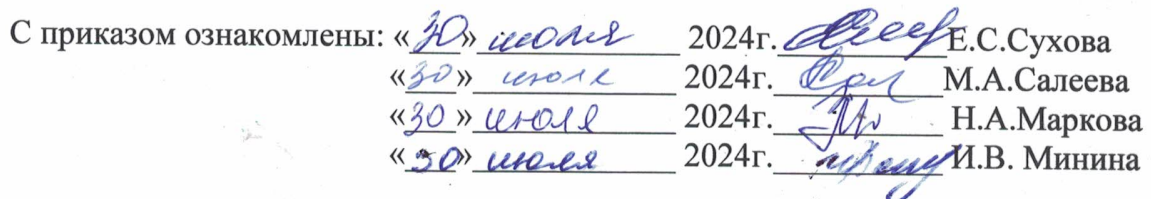 С приказом ознакомлены: «30» июля 2024г. Е.С.Сухова
«30» июля 2024г. М.А.Салеева
«30» июля 2024г. Н.А.Маркова
«30» июля 2024г. И.В. Минина